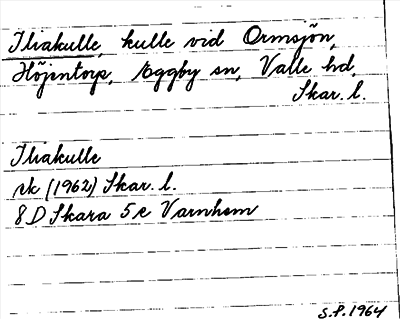 Iliakulle, kulle vid Ormsjön,
Höjentorp, Eggby sn, Valle hd,
Skar. l.
Iliakulle
rk (1962) Skar. l.
8 D Skara 5 e Varnhem
S.P. 1964